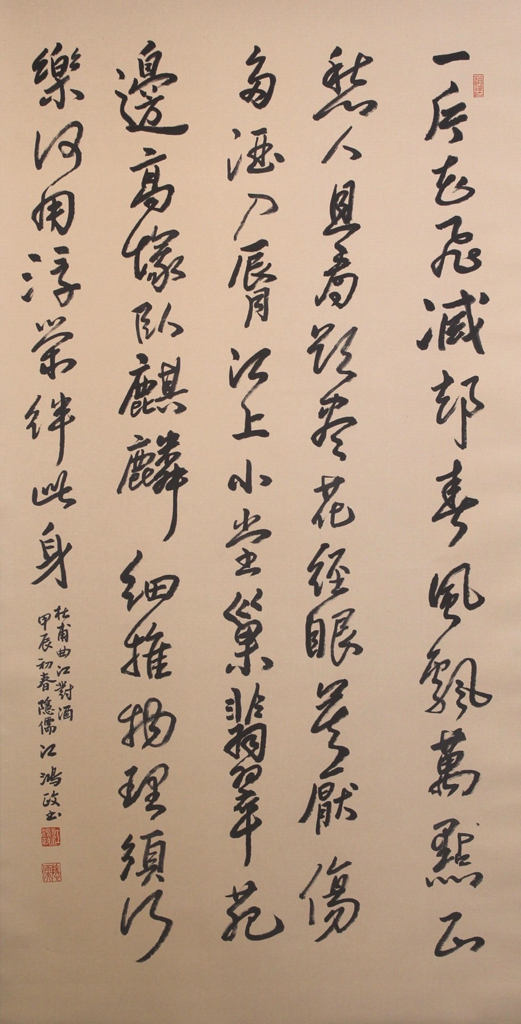 一片花飛減却春風飄萬點正
愁人且看欲盡花經眼莫厭傷
多酒入脣江上小堂巢翡翠苑
邊高塚臥麒麟細推物理須行
樂何用浮榮絆此身
杜甫曲江對酒
甲辰初春隱儒江鴻政書